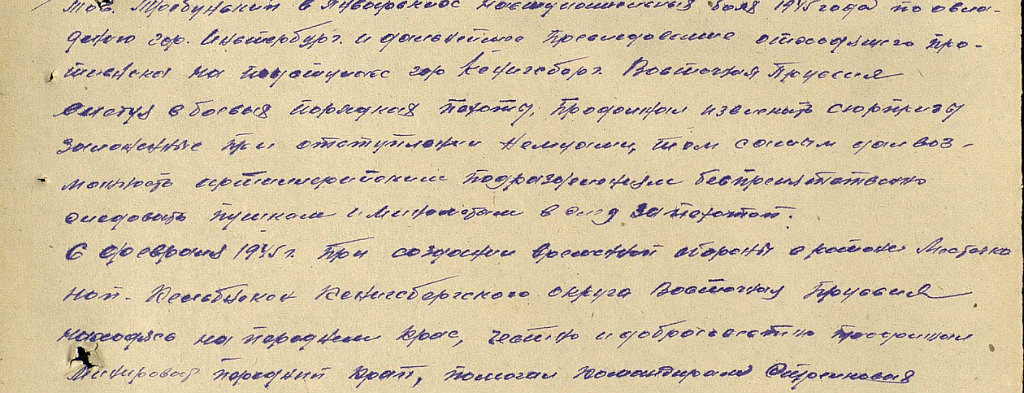 Тов. в наступательных боях 1945 года по овла-
дению гор. Инстербург. и дальнейшее преследование отходящего про-
тивника на подступах гор Кенигсберг. Восточная Пруссия
в боевых порядках пехоты, продолжал извлекать сюрпризы
заложенные при отступлении немцами, тем самым дал воз-
можность артиллерийским подразделениям беспрепятственно
следовать пушкам и минометам в след за пехотой.
6 февраля 1945 г. при создании временной обороны в районе Местечка
Кенигсбергского округа Восточная Пруссия
находясь на переднем крае, честно и добросовестно продолжал
Минировать передний край, помогал командирам Стрелковых